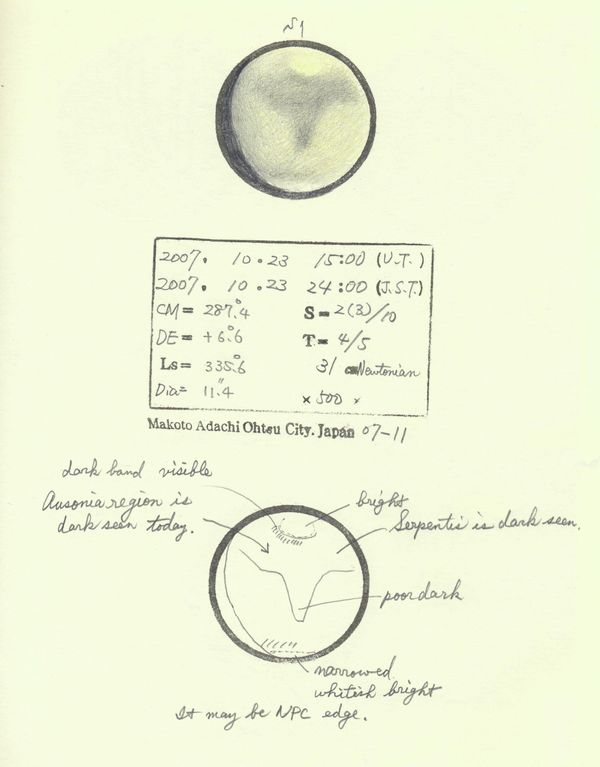 2007. 10.23 15:00 (U.T.)
2007. 10.23 24:00 (J.S.T.)
CM= 287°.4 S= 2(3)/10
DE= +6°.6 T= 4/5
Ls= 335°.6 31 cm Newtonian
Dia= 11".4 × 500 ×
Makoto Adachi Ohtsu City. Japan 07-11
dark band visible
Ausonia region is
dark seen today.
bright
Serpentis is dark seen.
poor dark
narrowed
whitish bright
It may be NPC edge.